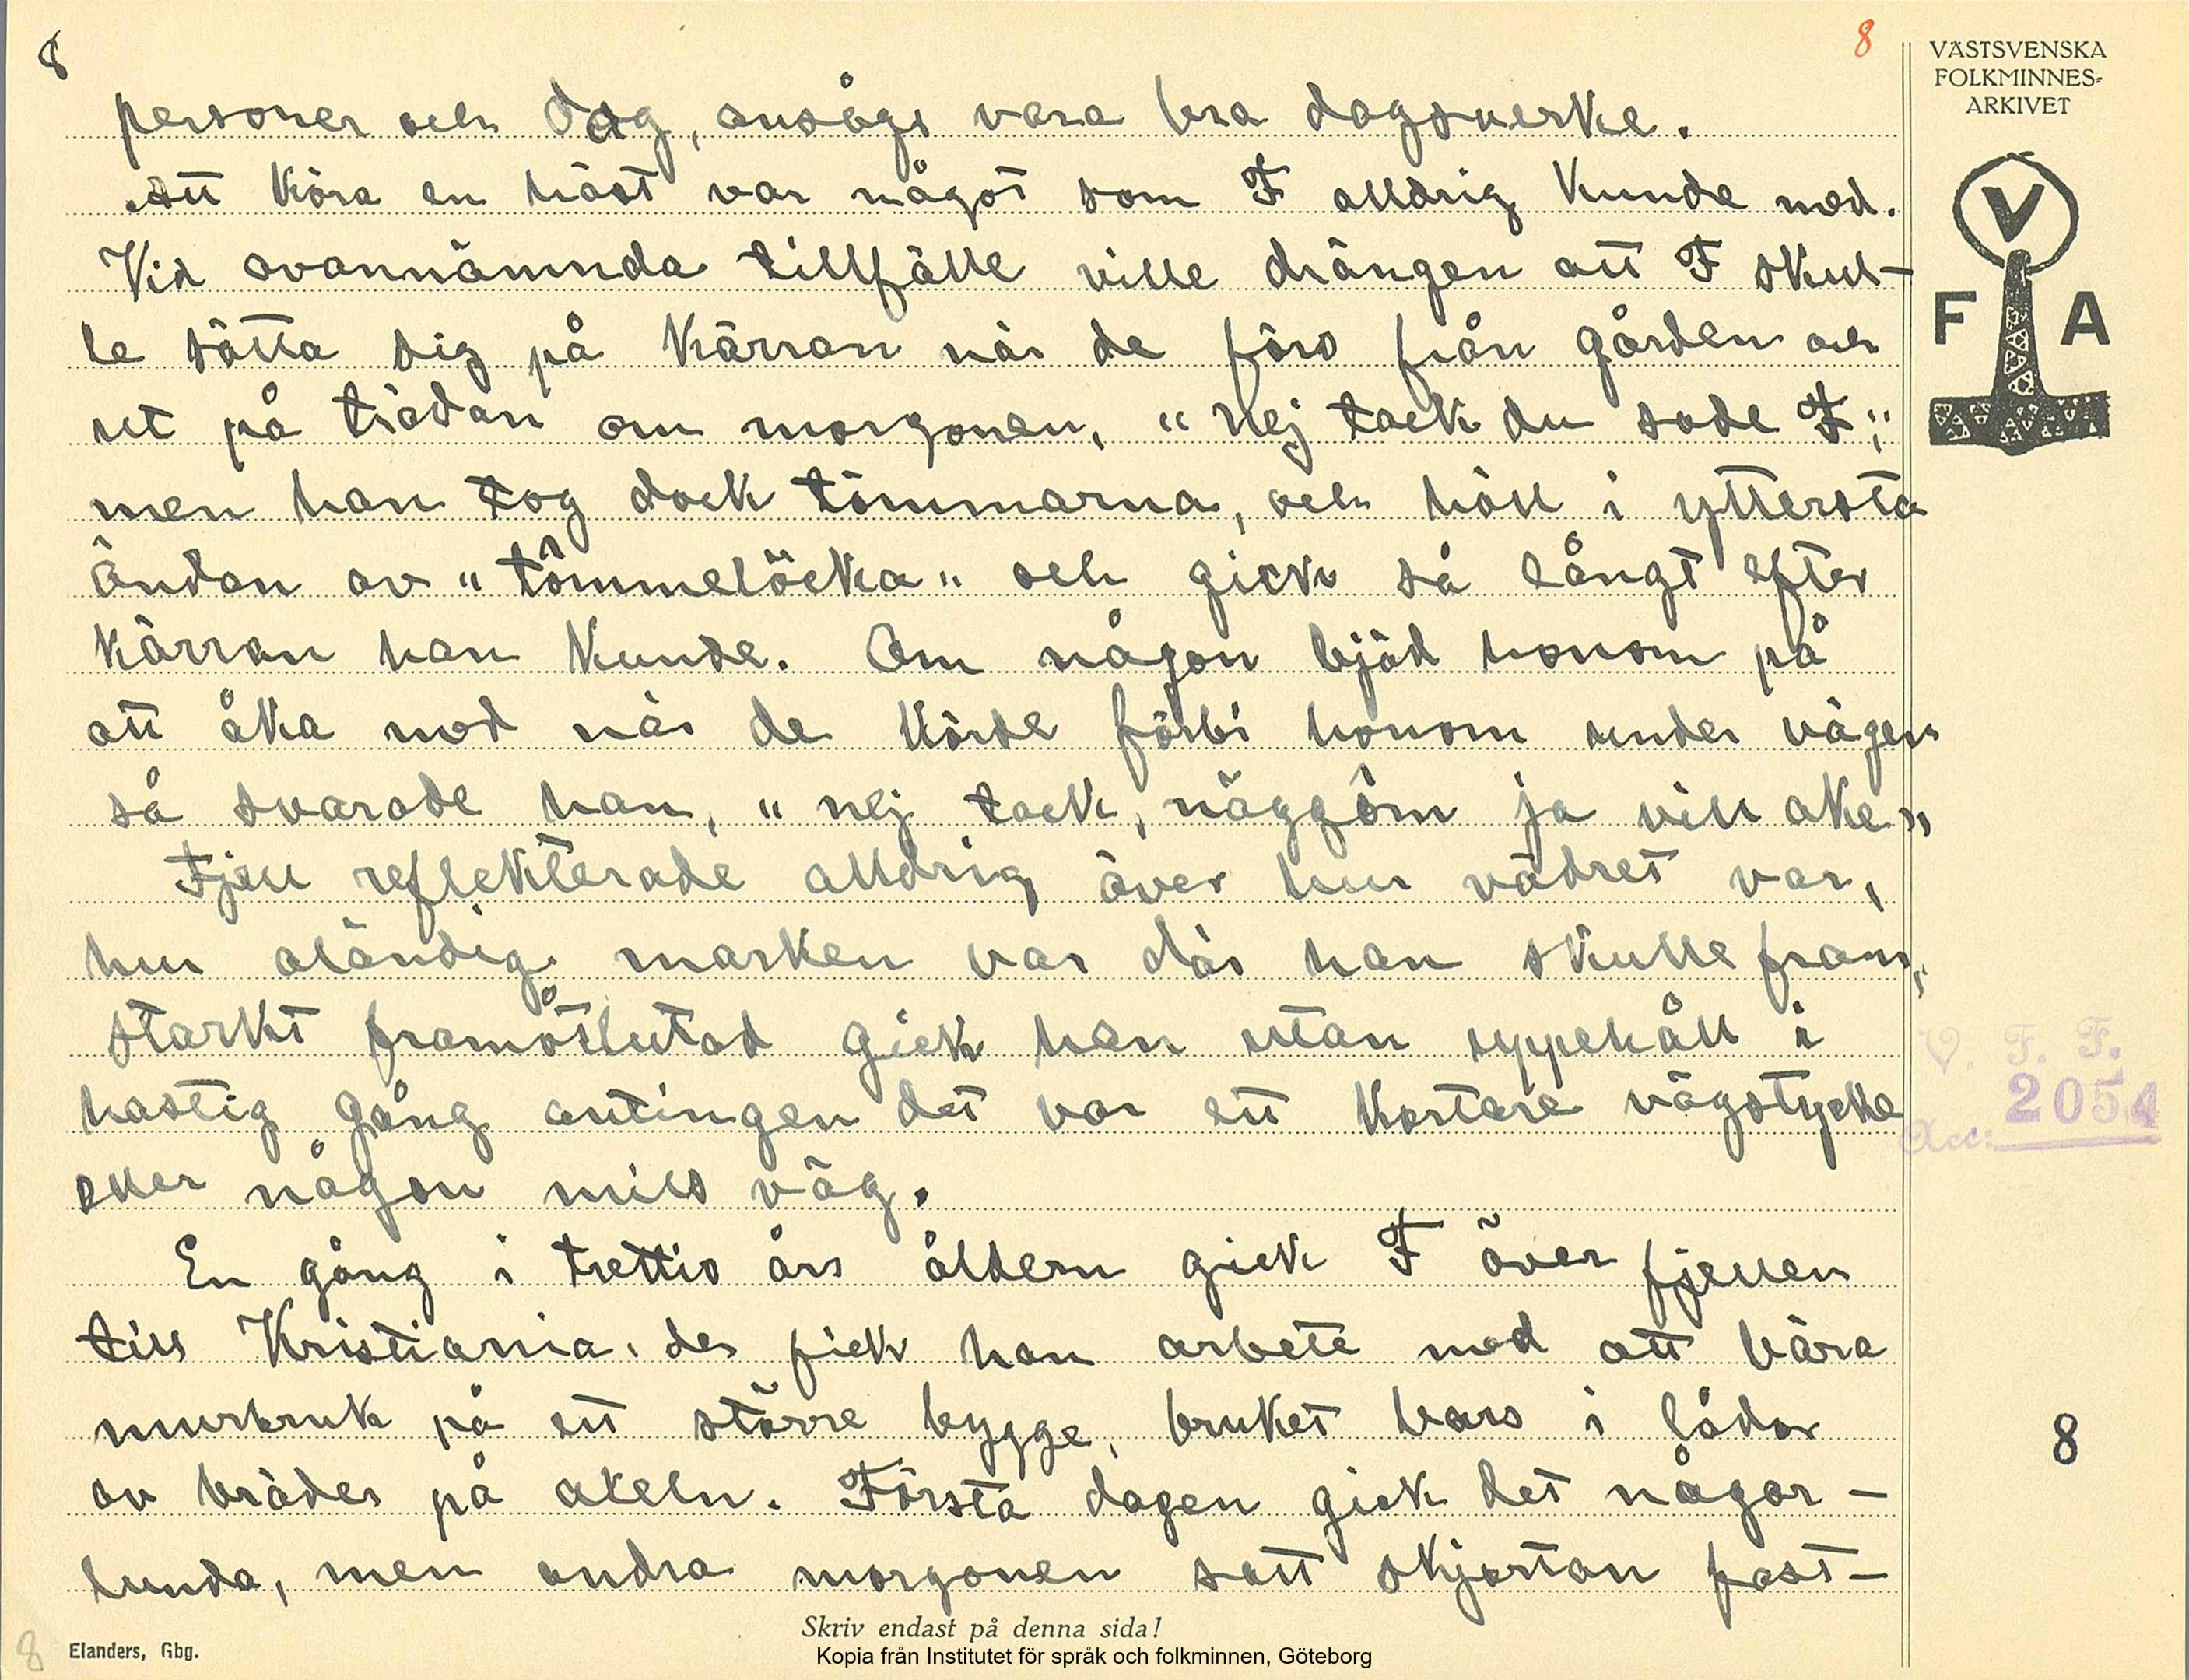 8
8
VÄSTSVENSKA
FOLKMINNES-
ARKIVET
V
F A
personer och dag, ansågs vara bra dagsverke.
Att köra en häst var något som F alldrig kunde med.
Vid ovannämnda tillfälle ville drängen att F skul-
le sätta sig på kärran när de föro från gården och
ut på trädan om morgonen, "nej tack du sade F;"
men han tog dock tömmarna, och höll i yttersta
ändan av "tömmelöcka" och gick så långt efter
kärran han kunde. Om någon bjöd honom på
att åka med när de körde förbi honom under vägen
så svarade han, "nej tack, näggöm ja vill åke"
Fjell reflekterade alldrig över hur vädret var,
hur oländig marken var där han skulle fram,
starkt framåtlutad gick han utan uppehåll i
hastig gång antingen det var ett kortare vägstycke
eller någon mils väg.
En gång i trettio års åldern gick F över fjellen
till Kristiania, der fick han arbete med att bära
murbruk på ett större bygge, bruket bars i lådor
av bräder på axeln. Första dagen gick det någor-
lunda, men andra morgonen satt skjortan fast-
V. F. F.
2054
Acc:
8
Skriv endast på denna sida!
8
Elanders, Gbg.
Kopia från Institutet för språk och folkminnen, Göteborg